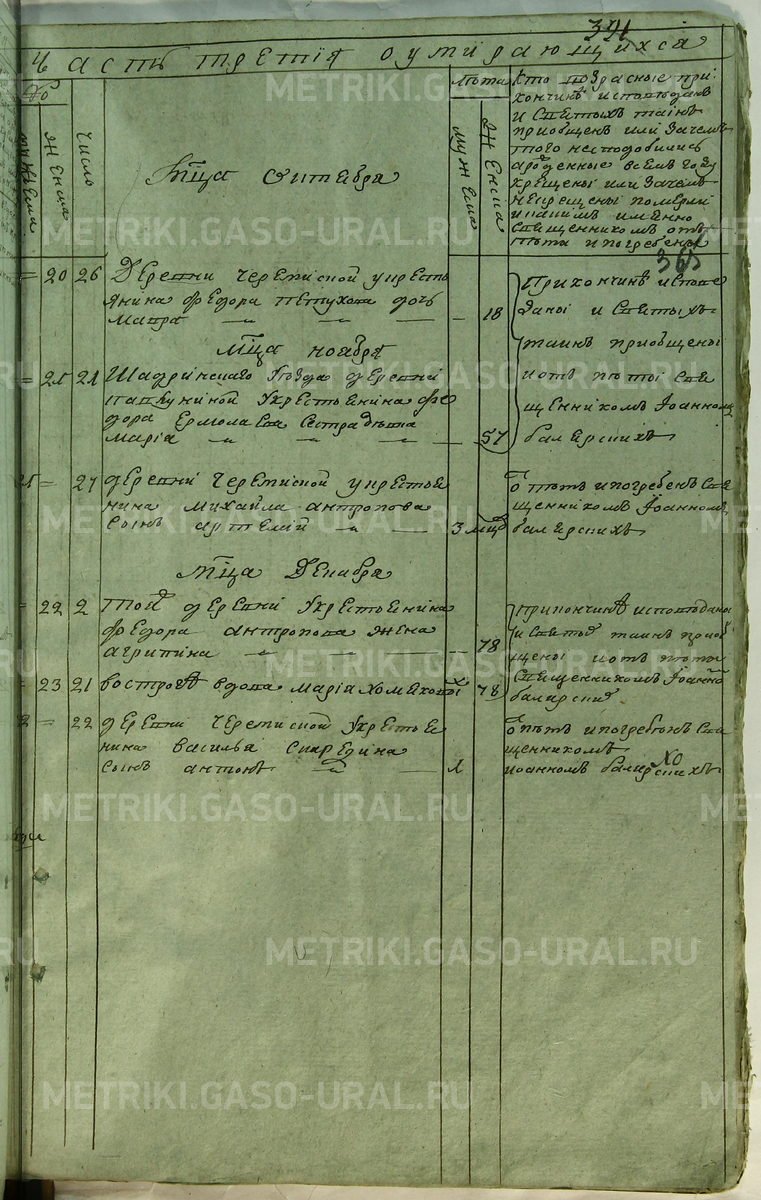 391
Часть третия о умирающихся
№
мужеска
женска
число
Мца Октебра
лѣта
мужеска
женска
кто возрасные при-
хожчинѣ исповѣданѣ
и Светыхъ таинъ
приобщенъ или зачемъ
того несподобились
арожденные всемъ году
крещены или зачемъ
некрещены померли
и какимъ имянно
Священникомъ отъ
пѣты и погребены
365
20 26 Деревни Черемиской у кресть
янина Федора Петухова дочь
Мавра 18
Прихожчинѣ испове
даны и Светыхъ
таинъ приобщены
и отъ пѣты Све
щенникомъ Иоанномъ
балерскихъ
Мца ноабря
21 21 Шадринскаго уѣзда деревни
Пашкуниной у крестьянина фе
дора Ермолаева сестра дѣвка
Мария 57
27 деревни Черемиской у крестье
нина Михаила антропова
сынъ артемий 3 мца
отпѣтъ и погребенъ Све
щенникомъ Иоанномъ
балерскихъ
Мца Декабра
22 2 той деревни у крестьянина
Федора антропова жена
агрипина 78
прихожчинѣ исповѣданы
и Светыхъ таинъ приоб
щены и отъ пѣты
Священникомъ Иоанно
балерских
23 21 вострова вдова мария хомяковы 78
22 деревни Черемиской у крестье
нина василья Спиредина
сынъ антонъ 1
отпѣтъ и погребенъ Све
щенникомъ
иоанномъ балерскихъ
METRIKI.GASO-URAL.RU